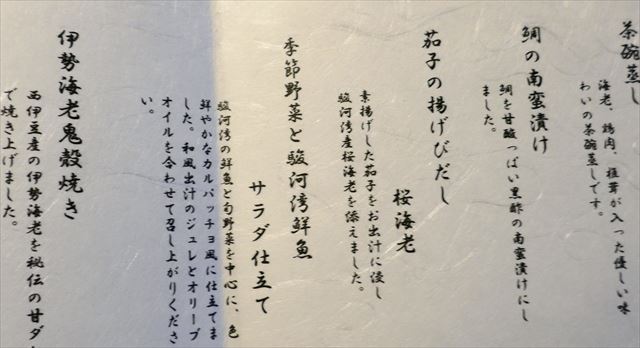 茶碗蒸し
海老、鶏肉、椎茸が入った優しい味
わいの茶碗蒸しです。
鯛の南蛮漬け
鯛を甘酸っぱい黒酢の南蛮漬けにし
ました。
茄子の揚げびだし
桜海老
素揚げした茄子をお出汁に浸し
駿河湾産桜海老を添えました。
季節野菜と駿河湾鮮魚
サラダ仕立て
駿河湾の鮮魚と旬野菜を中心に、色
鮮やかなカルパッチョ風に仕立てま
した。和風出汁のジュレとオリーブ
オイルを合わせて召し上がりくださ
い。
伊勢海老鬼殻焼き
西伊豆産の伊勢海老を秘伝の甘ダ
で焼き上げました。